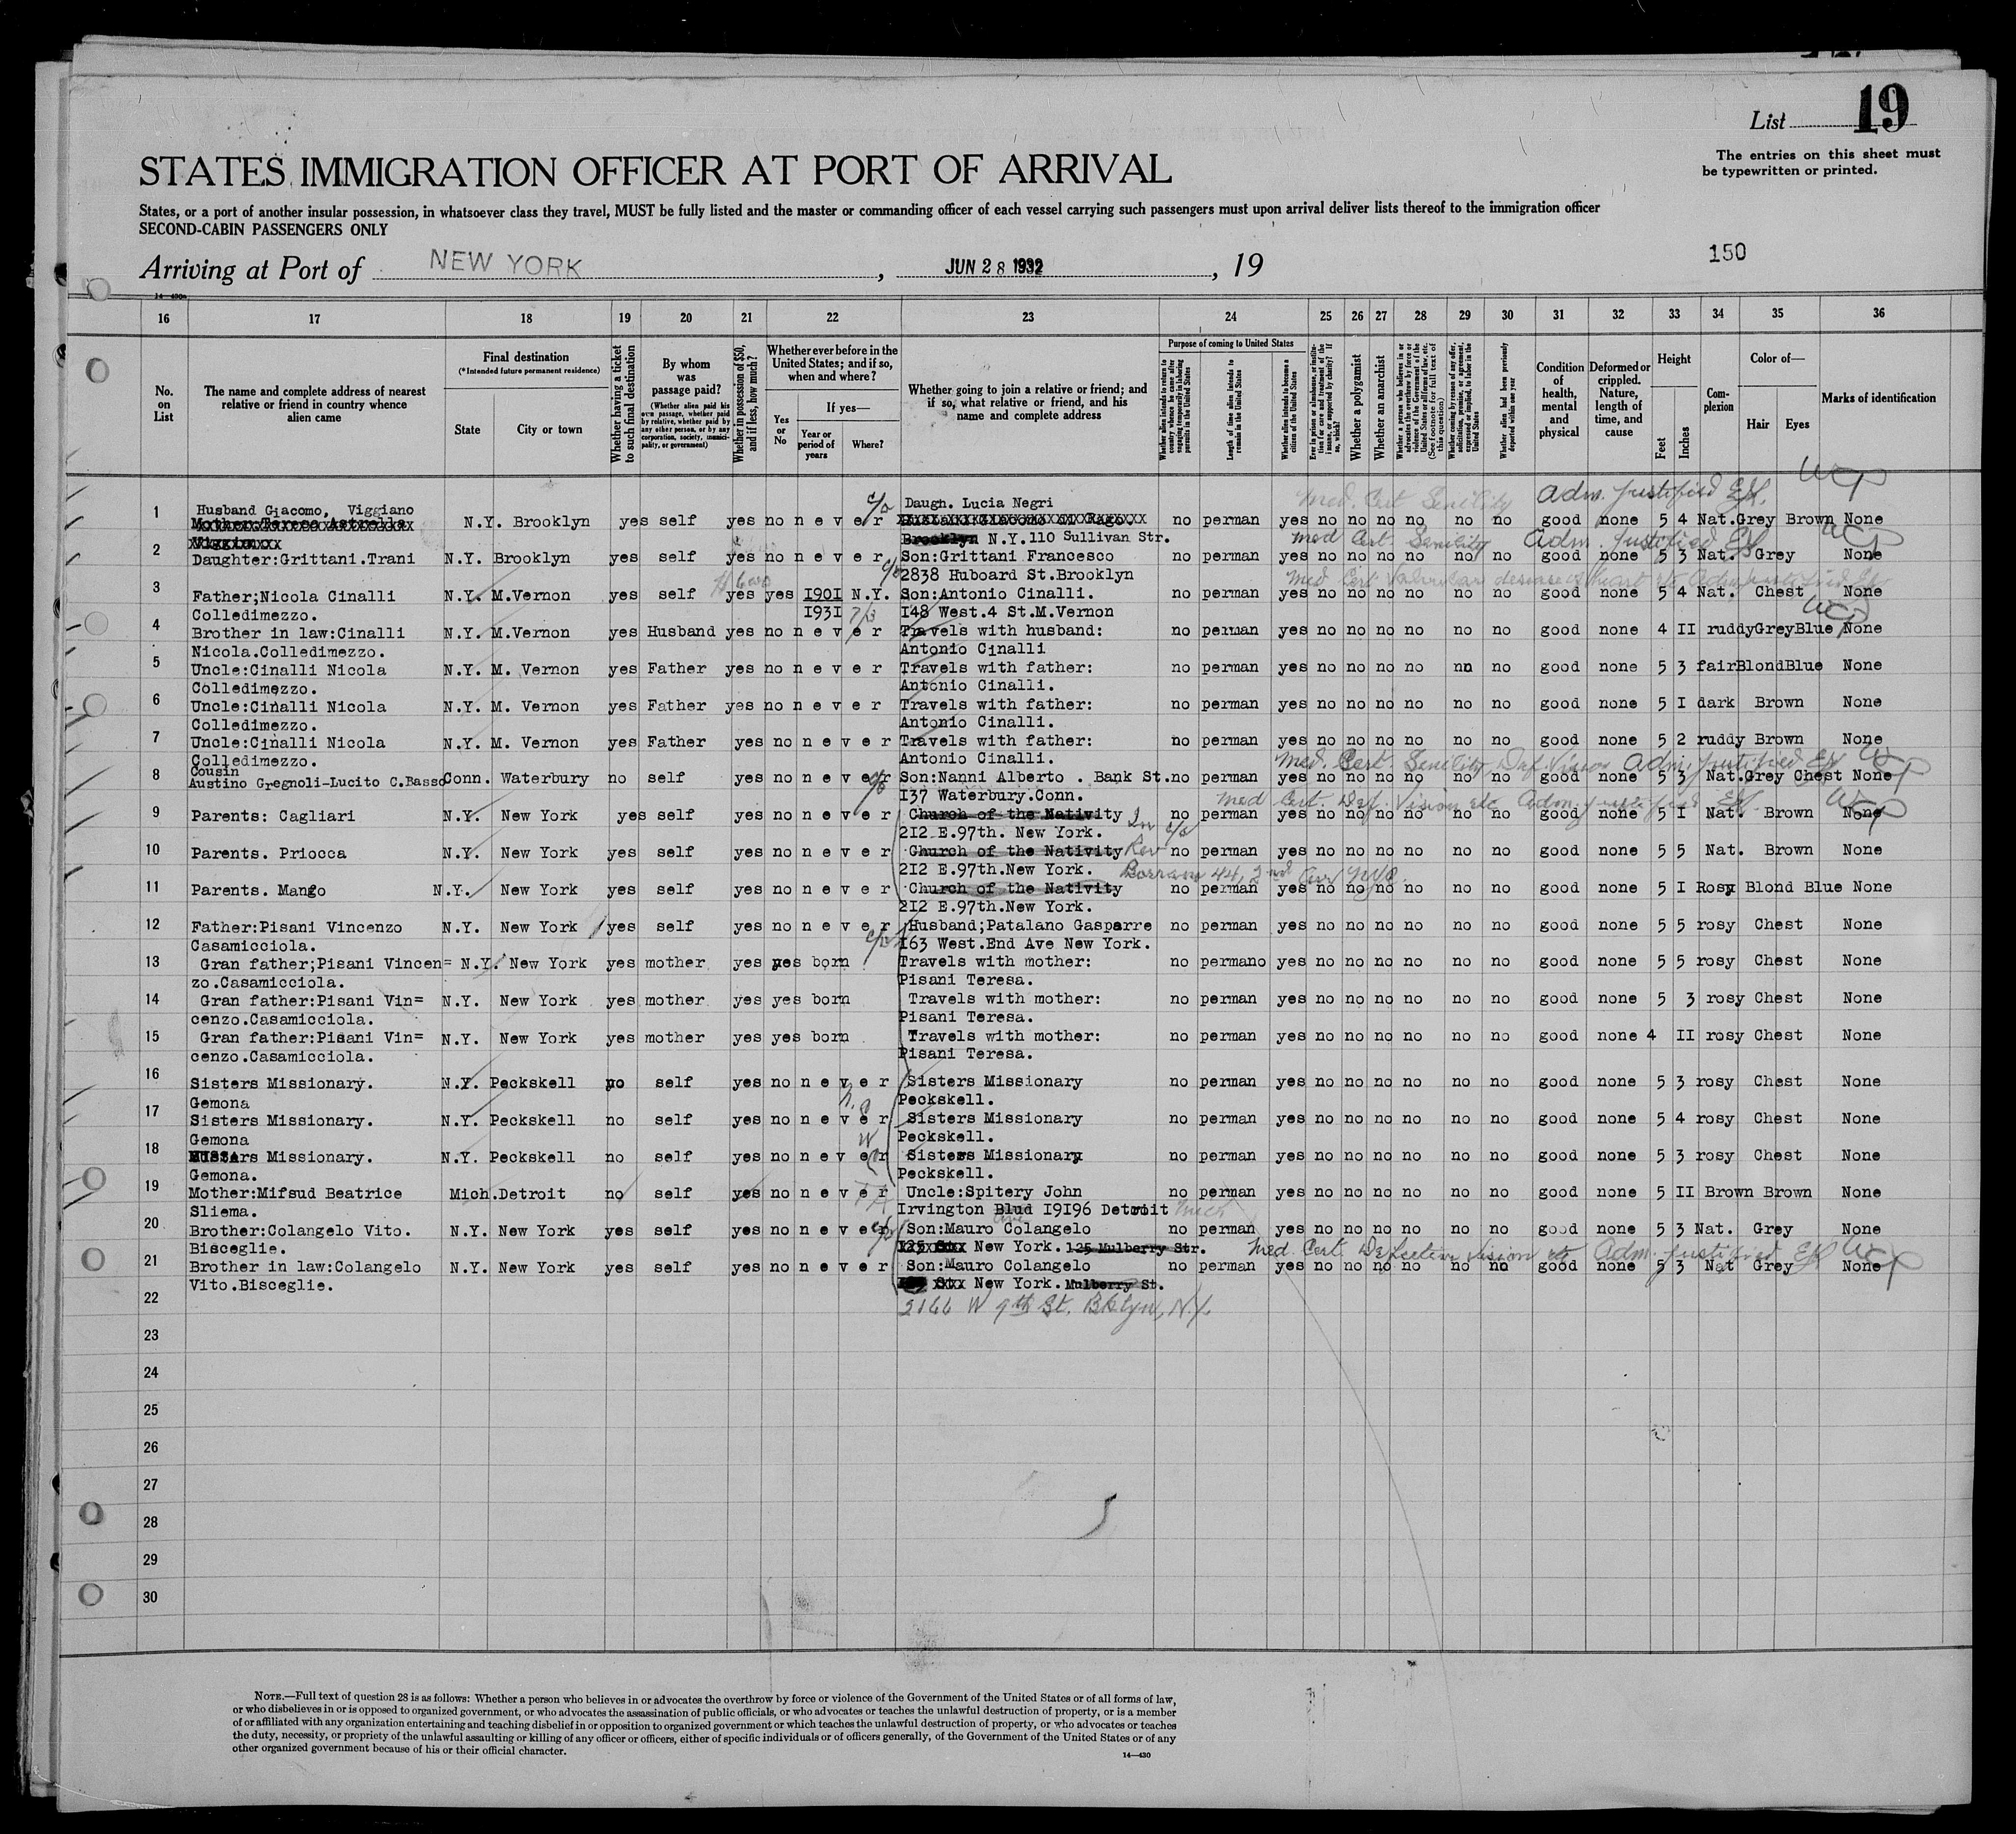 List 19
The entries on this sheet must
be typewritten or printed.
STATES IMMIGRATION OFFICER AT PORT OF ARRIVAL
States, or a port of another insular possession, in whatsoever class they travel, MUST be fully listed and the master or commanding officer of each vessel carrying such passengers must upon arrival deliver lists thereof to the immigration officer
SECOND-CABIN PASSENGERS ONLY
150
Arriving at Port of NEW YORK, JUN 28 1932, 19
16 17 18 19 20 21 22 23 24 25 26 27 28 29 30 31 32 33 34 35 36
No. on List
The name and complete address of nearest relative or friend in country whence alien came
Final destination
(*Intended future permanent residence)
State
City or town
Whether having a ticket to such final destination
By whom was passage paid?
(Whether alien paid his own passage, whether paid by relative, whether paid by any other person, or by any corporation, society, municipality, or government)
Whether in possession of $50, and if less, how much?
Whether ever before in the United States; and if so, when and where?
Yes or No
If yes—
Year or period of years
Where?
Whether going to join a relative or friend; and if so, what relative or friend, and his name and complete address
Purpose of coming to United States
Length of time alien intends to remain in the United States
Whether alien intends to become a citizen of the United States
Whether a polygamist
Whether an anarchist
Condition of health, mental and physical
Deformed or crippled. Nature, length of time, and cause
Height
Feet
Inches
Complexion
Color of—
Hair
Eyes
Marks of identification
Med. Cert Senility Adm. justified
Husband Giacomo, Viggiano Daugh. Lucia Negri
1 N.Y. Brooklyn yes self yes no never no perman yes no no no no no no good none 5 4 Nat. Grey Brown None
Brooklyn N.Y. 110 Sullivan Str. Med Cert. Senility Adm. justified
2 Daughter:Grittani.Trani N.Y. Brooklyn yes self yes no never Son:Grittani Francesco no perman yes no no no no no no good none 5 3 Nat. Grey None
2838 Huboard St.Brooklyn
3 Father;Nicola Cinalli N.Y. M.Vernon yes self yes yes I90I N.Y. Son:Antonio Cinalli. no perman yes no no no no no no good none 5 4 Nat. Chest None
Colledimezzo. I93I I48 West.4 St.M.Vernon
4 Brother in law:Cinalli N.Y. M.Vernon yes Husband yes no never Travels with husband: no perman yes no no no no no no good none 4 II ruddy Grey Blue None
Nicola.Colledimezzo. Antonio Cinalli
5 Uncle:Cinalli Nicola N.Y. M. Vernon yes Father yes no never Travels with father: no perman yes no no no no nn no good none 5 3 fair Blond Blue None
Colledimezzo. Antonio Cinalli.
6 Uncle:Cinalli Nicola N.Y. M. Vernon yes Father yes no never Travels with father: no perman yes no no no no no no good none 5 I dark Brown None
Colledimezzo. Antonio Cinalli.
7 Uncle:Cinalli Nicola N.Y. M. Vernon yes Father yes no never Travels with father: no perman yes no no no no no no good none 5 2 ruddy Brown None
Colledimezzo. Antonio Cinalli. Med. Cert. Senility Def. Vision Adm. justified
Cousin
8 Austino Gregnoli-Lucito C.Basso Conn. Waterbury no self yes no never Son:Nanni Alberto . Bank St. no perman yes no no no no no no good none 5 3 Nat. Grey Chest None
I37 Waterbury.Conn. Med Cert. Def. Vision etc Adm. justified
9 Parents: Cagliari N.Y. New York yes self yes no never Church of the Nativity no perman yes no no no no no no good none 5 I Nat. Brown None
2I2 E.97th. New York.
10 Parents. Priocca N.Y. New York yes self yes no never Church of the Nativity Rev no perman yes no no no no no no good none 5 5 Nat. Brown None
2I2 E.97th.New York. 44, 2nd Ave
11 Parents. Mango N.Y. New York yes self yes no never Church of the Nativity no perman yes no no no no no no good none 5 I Rosy Blond Blue None
2I2 E.97th.New York.
12 Father:Pisani Vincenzo N.Y. New York yes self yes no never Husband;Patalano Gasparre no perman yes no no no no no no good none 5 5 rosy Chest None
Casamicciola. I63 West.End Ave New York.
13 Gran father;Pisani Vincen= N.Y. New York yes mother yes yes born Travels with mother: no permano yes no no no no no no good none 5 5 rosy Chest None
zo.Casamicciola. Pisani Teresa.
14 Gran father:Pisani Vin= N.Y. New York yes mother yes yes born Travels with mother: no perman yes no no no no no no good none 5 3 rosy Chest None
cenzo.Casamicciola. Pisani Teresa.
15 Gran father:Pisani Vin= N.Y. New York yes mother yes yes born Travels with mother: no perman yes no no no no no no good none 4 II rosy Chest None
cenzo.Casamicciola. Pisani Teresa.
16 Sisters Missionary. N.Y. Peckskell no self yes no never Sisters Missionary no perman yes no no no no no no good none 5 3 rosy Chest None
Gemona Peckskell.
17 Sisters Missionary. N.Y. Peckskell no self yes no never Sisters Missionary no perman yes no no no no no no good none 5 4 rosy Chest None
Gemona Peckskell.
18 Missionary. N.Y. Peckskell no self yes no never Sisters Missionary no perman yes no no no no no no good none 5 3 rosy Chest None
Gemona. Peckskell.
19 Mother:Mifsud Beatrice Mich.Detroit no self yes no never Uncle:Spitery John no perman yes no no no no no no good none 5 II Brown Brown None
Sliema. Irvington Blud I9I96 Detroit Mich
20 Brother:Colangelo Vito. N.Y. New York yes self yes no never Son:Mauro Colangelo no perman yes no no no no no no good none 5 3 Nat. Grey None
Bisceglie. New York. 125 Mulberry Str. Med Cert Defective vision etc Adm. justified
21 Brother in law:Colangelo N.Y. New York yes self yes no never Son:Mauro Colangelo no perman yes no no no no no no good none 5 3 Nat Grey None
Vito.Bisceglie. New York. Mulberry St.
22 2166 W 9th St. Bklyn, N.Y.
23
24
25
26
27
28
29
30
NOTE.—Full text of question 28 is as follows: Whether a person who believes in or advocates the overthrow by force or violence of the Government of the United States or of all forms of law,
or who disbelieves in or is opposed to organized government, or who advocates the assassination of public officials, or who advocates or teaches the unlawful destruction of property, or is a member
of or affiliated with any organization entertaining and teaching disbelief in or opposition to organized government or which teaches the unlawful destruction of property, or who advocates or teaches
the duty, necessity, or propriety of the unlawful assaulting or killing of any officer or officers, either of specific individuals or of officers generally, of the Government of the United States or of any
other organized government because of his or their official character.
14—430